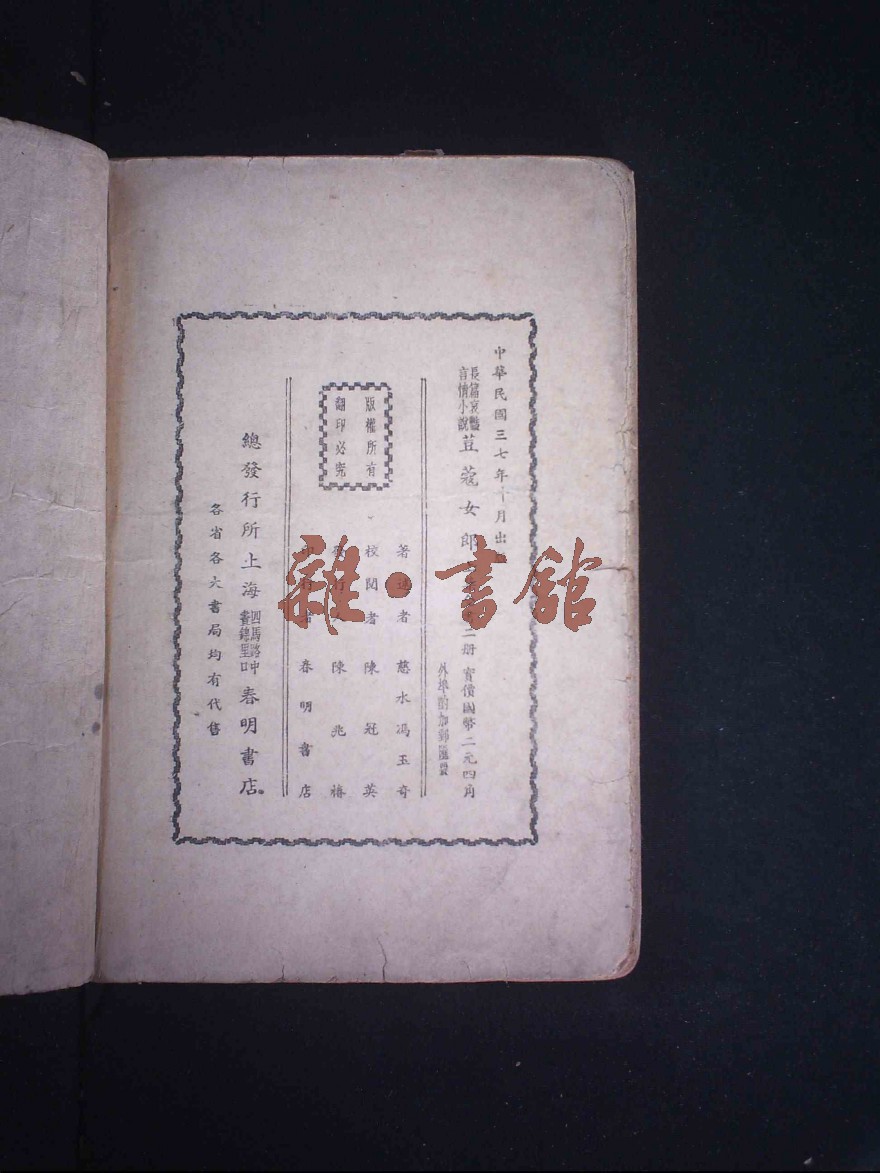 中華民國三七年十月出
長篇哀豔
言情小說
荳蔻女郎
二册實價國幣二元四角
外埠酌加郵匯費
著述者慈水馮玉奇
校閱者陳冠英
發行人陳兆椿
印行者春明書店
版權所有
翻印必究
總發行所上海
四馬路中
畫錦里口
春明書店
各省各大書局均有代售
雜·書館